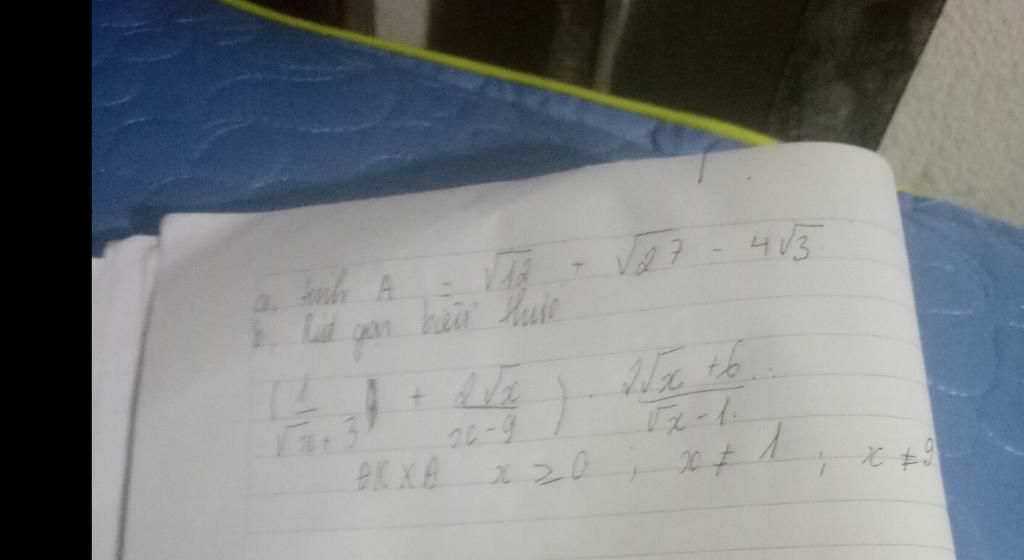 a. tính A = √12 + √27 - 4√3
b. Rút gọn biểu thức
(1/(√x + 3) + 2√x/(x - 9)) . (2√x + 6)/(√x - 1)
ĐKXĐ x ≥ 0 ; x ≠ 1 ; x ≠ 9